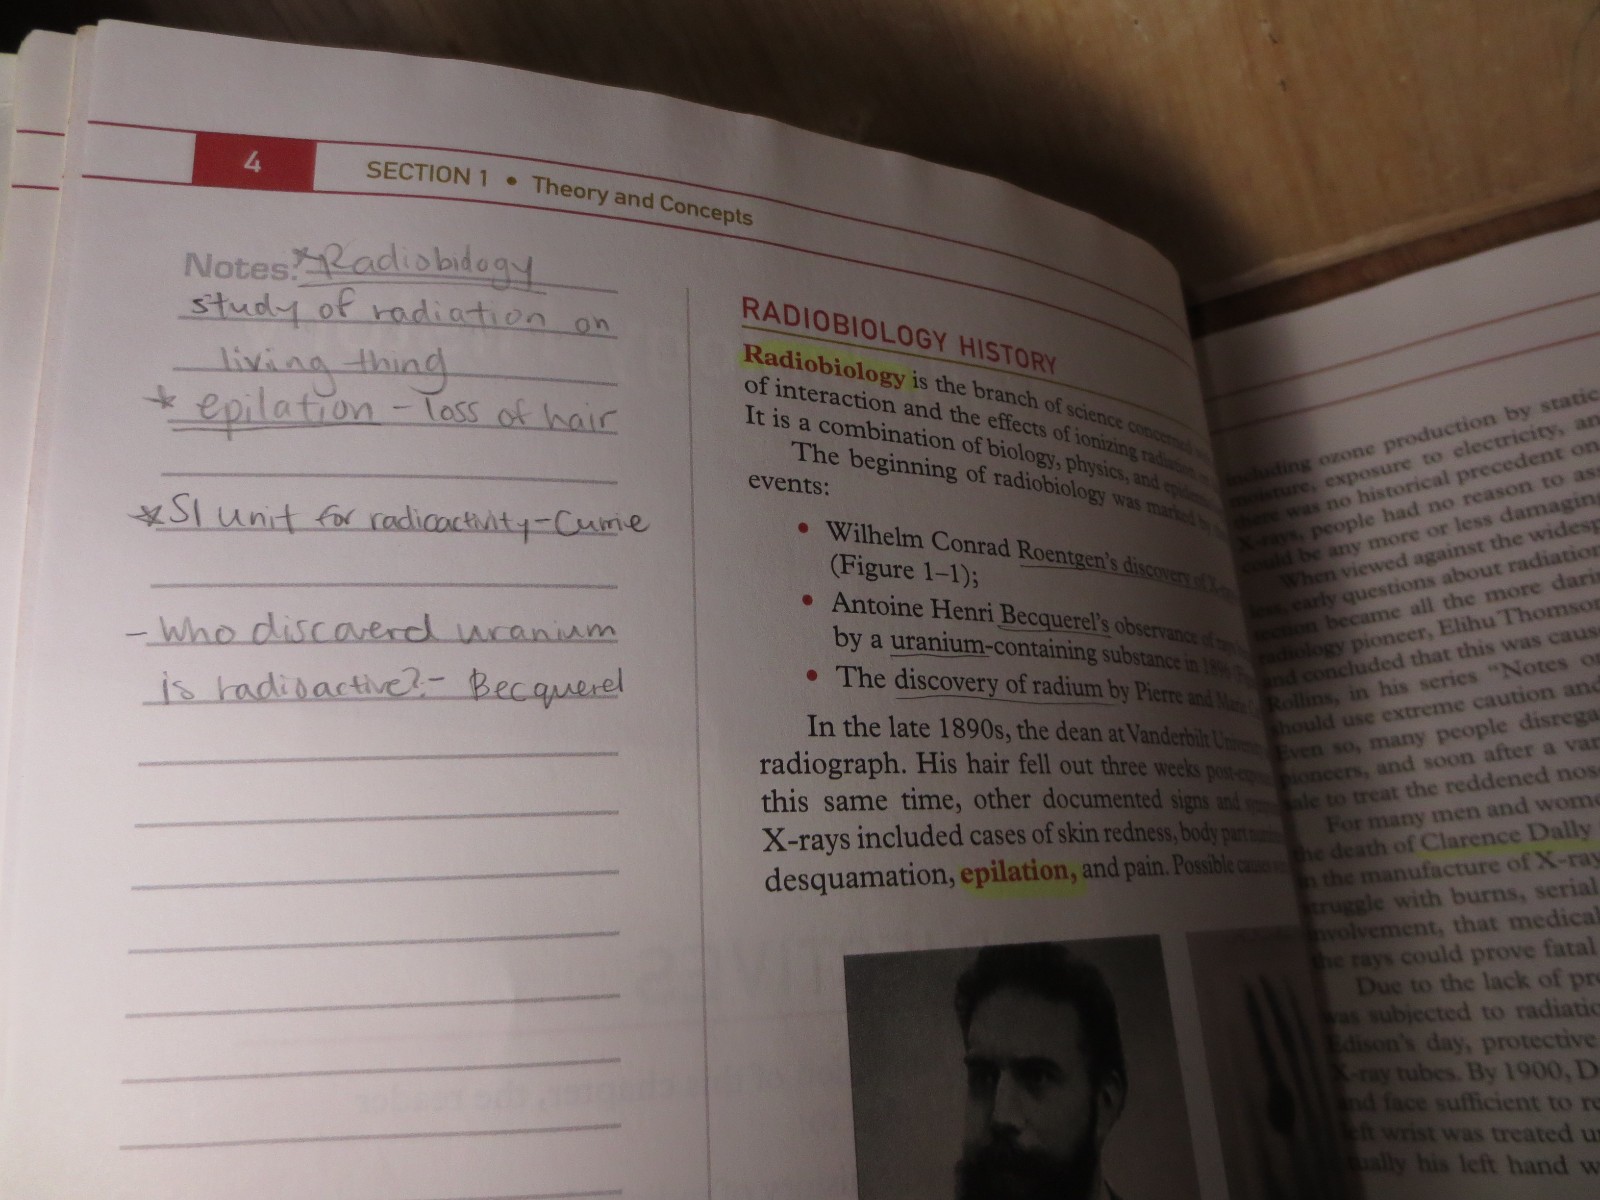 4
SECTION 1 • Theory and Concepts
Notes: *Radiobiology
study of radiation on
living thing
* epilation - loss of hair
*SI unit for radioactivity - Currie
- Who discoverd uranium
is radioactive? - Becquerel
RADIOBIOLOGY HISTORY
Radiobiology is the branch of science concerned
of interaction and the effects of ionizing radiation on
It is a combination of biology, physics, and
The beginning of radiobiology was marked by
events:
• Wilhelm Conrad Roentgen's discovery of
(Figure 1–1);
• Antoine Henri Becquerel's observance of rays
by a uranium-containing substance in 1896
• The discovery of radium by Pierre and Marie
In the late 1890s, the dean at Vanderbilt
radiograph. His hair fell out three weeks
this same time, other documented signs and
X-rays included cases of skin redness, body part
desquamation, epilation, and pain. Possible
including ozone production by static
moisture, exposure to electricity,
there was no historical precedent on
X-rays, people had no reason to
could be any more or less damaging
When viewed against the
early questions about radiation
became all the more
radiology pioneer, Elihu Thomson
and concluded that this was
Rollins, in his series "Notes
should use extreme caution and
Even so, many people
pioneers, and soon after a
to treat the reddened
For many men and
the death of Clarence Dally
in the manufacture of X-ray
struggle with burns, serial
involvement, that medical
the rays could prove fatal
Due to the lack of
was subjected to
Edison's day, protective
X-ray tubes. By 1900,
and face sufficient to
left wrist was treated
his left hand